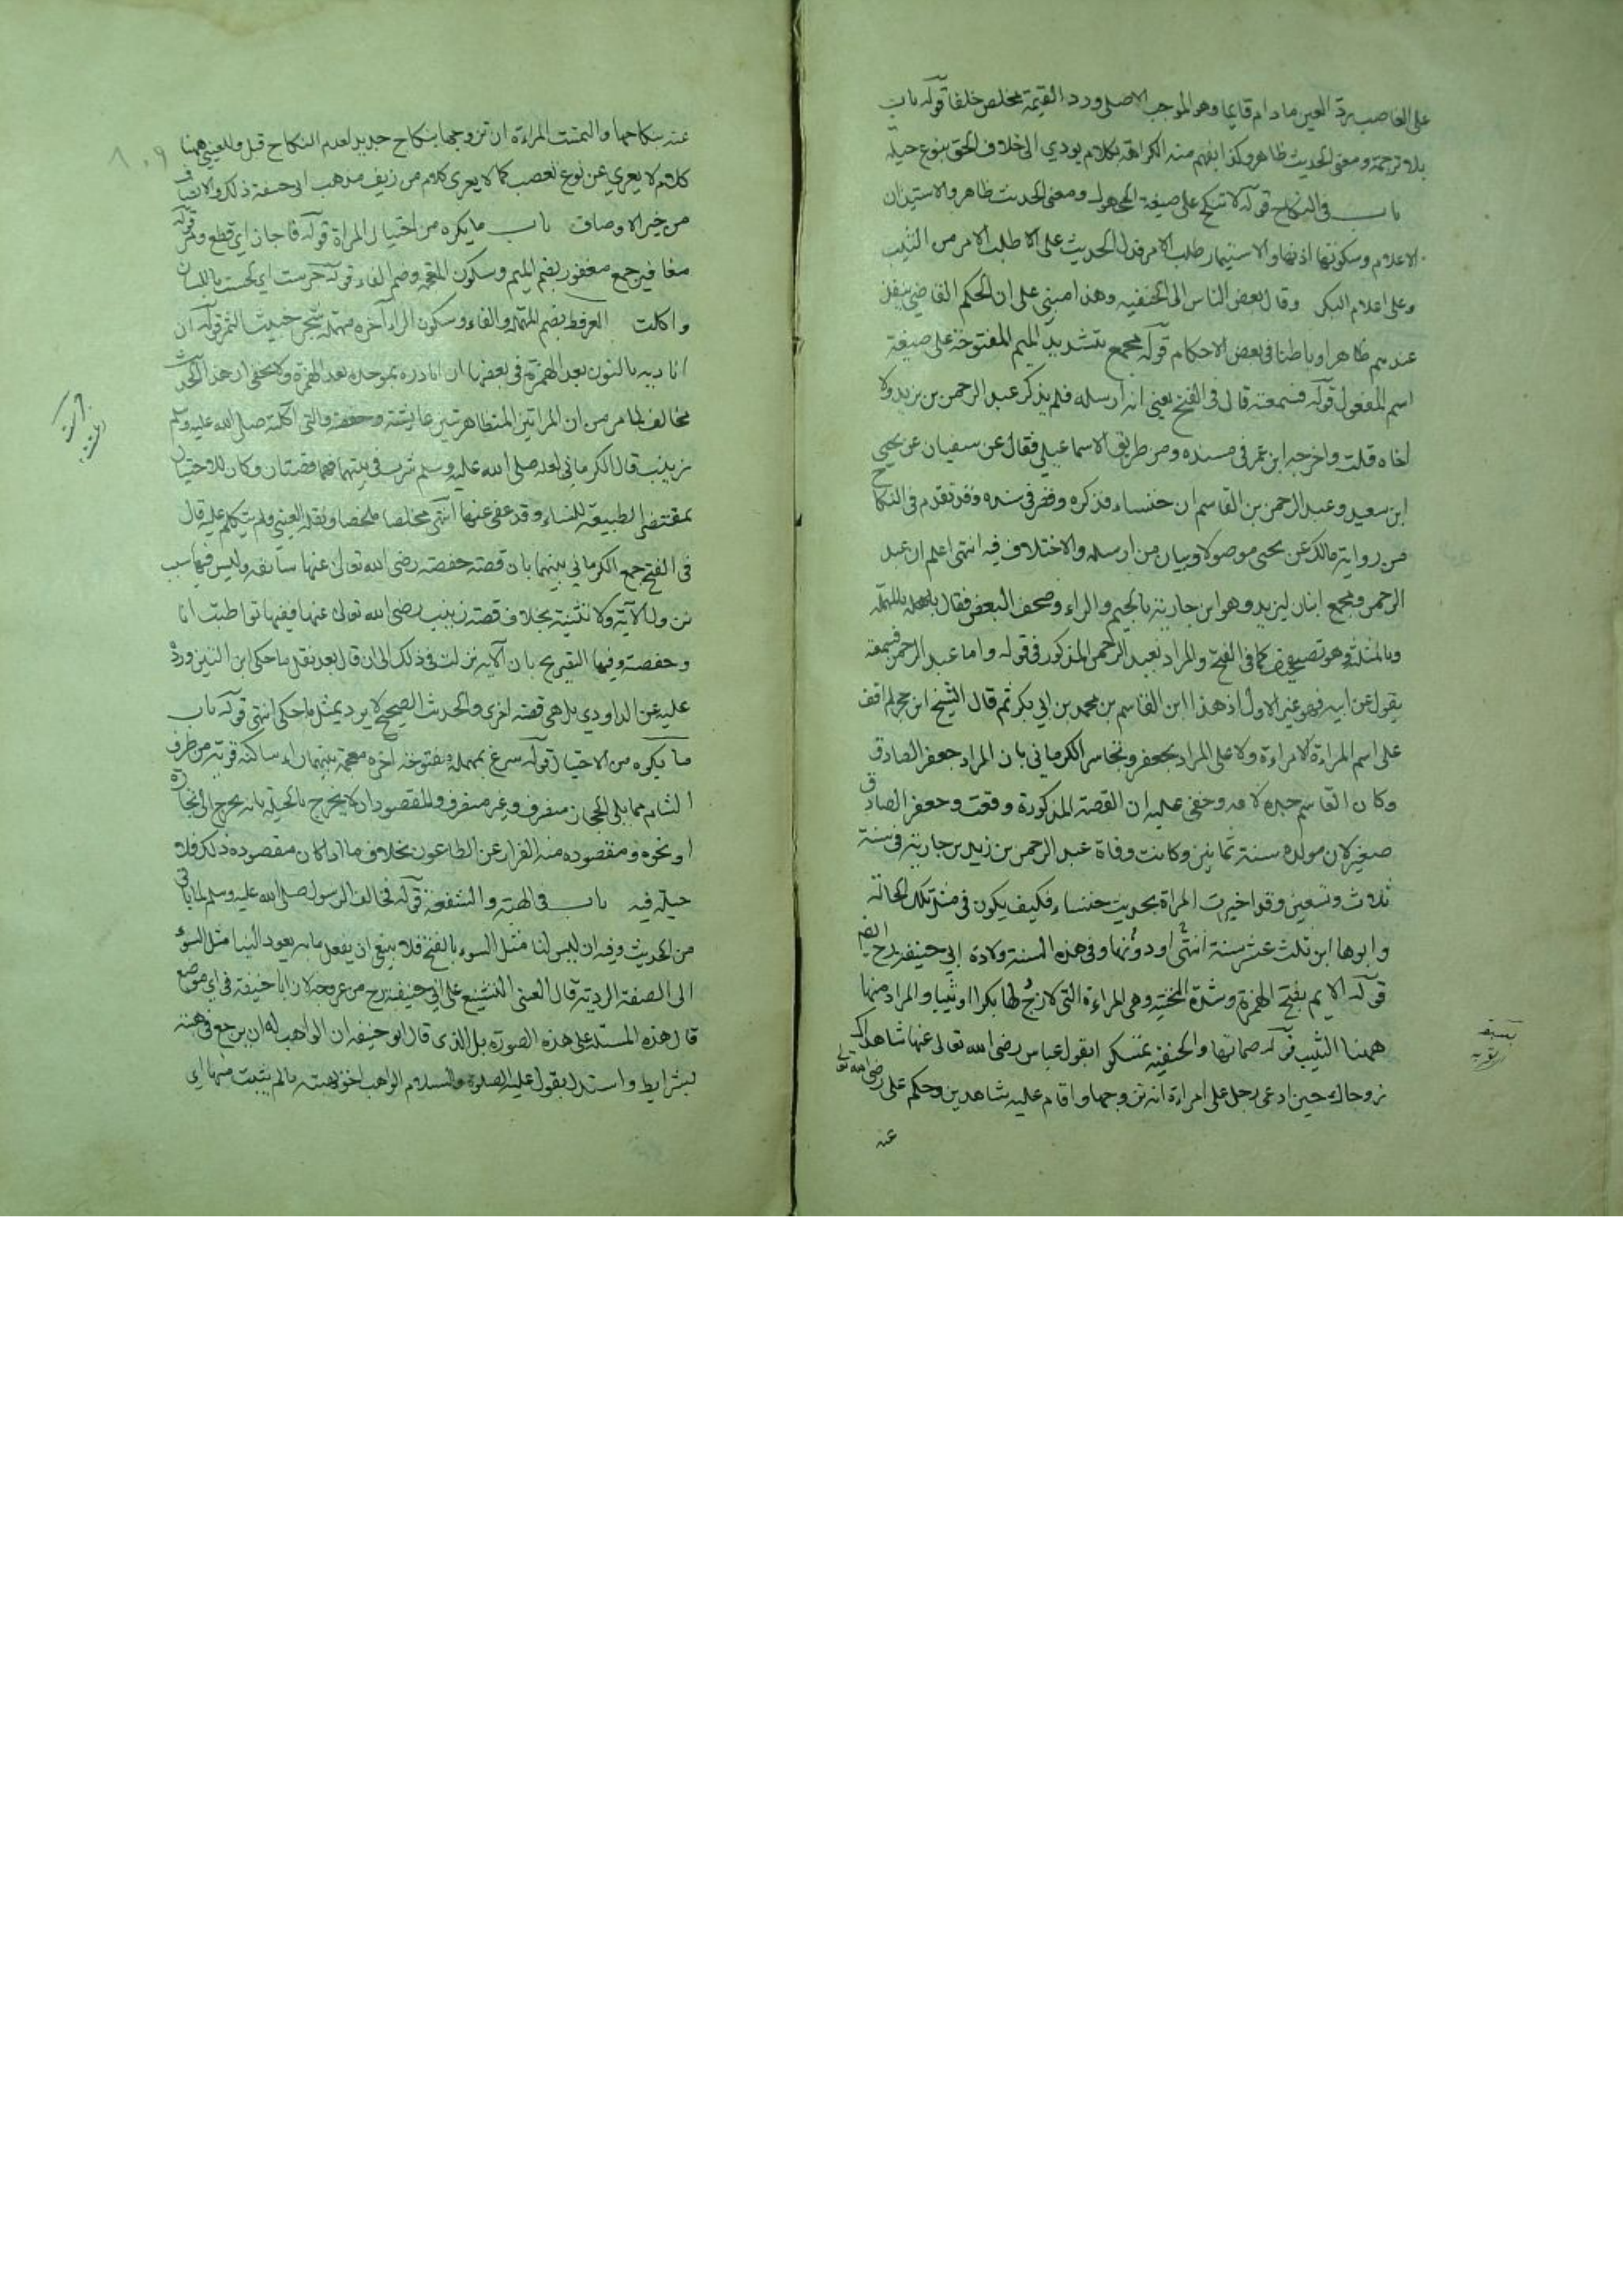 على الغاصب برد العين مادام قايما وهو الموجب الاصلى ورد القيمة مخلص خلفا قوله باب
بلا ترجمة ومعنى الحديث ظاهر وكذا يفهم منه الكراهة لكلام يودي الى خلاف الحق بنوع حيلة
باب فى النكاح قوله لا تنكح على صيغة المجهول ومعنى الحديث ظاهر والاستيذان
الاعلام وسكوتها اذنها والاستيمار طلب الامر فدل الحديث على الاطلب الامر من الثيب
وعلى اعلام البكر وقال بعض الناس اى الحنفيه وهذا مبني على ان الحكم القاضي ينفذ
عندهم ظاهرا وباطنا فى بعض الاحكام قوله مجمع بتشديد الميم المفتوحة على صيغة
اسم المفعول قوله فسمعته قال فى الفتح يعني انه ارسله فلم يذكر عبد الرحمن بن يزيد ولا
اخاه قلت واخرجه ابن عمر فى مسنده ومن طريق الاسماعيلي فقال عن سفيان عن يحيى
ابن سعيد وعبد الرحمن بن القاسم ان خنساء فذكره وقصر فى سنده وقد تقدم فى النكاح
من رواية مالك عن يحيى موصولا وبيان من ارسله والاختلاف فيه انتهى اعلم ان عبد
الرحمن ومجمع ابنان ليزيد وهو ابن جارية بالجيم والراء وصحف البعض فقال بالمهملة
وبالمثلثة وهو تصحيف كما فى الفتح والمراد بعبد الرحمن المذكور فى قوله واما عبد الرحمن فسمعته
يقول عن ابيه فهو غير الاول اذ هذا ابن القاسم بن محمد بن ابي بكر ثم قال الشيخ ابن حجر لم اقف
على اسم المراءة لامراءة ولا على المراد بجعفر وتجاسر الكرماني بان المراد جعفر الصادق
وكان القاسم جده لامه وخفي عليه ان القصة المذكورة وقعت وجعفر الصادق
صغير لان مولده سنة ثمانين وكانت وفاة عبد الرحمن بن زيد بن جارية فى سنة
ثلاث وتسعين وقد اخبرت المراة بحديث خنساء فكيف يكون فى مثل تلك الحالة
وابوها ابن ثلث عشر سنة انتهى او دونها وفى هذه السنة ولادة ابي حنيفة رح ايضا
قوله الايم بفتح الهمزة وشدة التحتية وهى المراءة التى لا زوج لها بكرا او ثيبا والمراد منها
ههنا الثيب قوله صماتها والحنفية تمسكوا بقول عباس رضى الله تعالى عنها شاهداك
زوجاك حين ادعى رجل على امراءة انه تزوجها واقام عليه شاهدين وحكم على رضى الله تعالى
عنه
٨٠٩
عنه بنكاحها والتمست المراءة ان تزوجها بنكاح جديد لعدم النكاح قبل وللعيني ههنا
كلام لا يعري عن نوع تعصب كما لا يعرى كلام من زيف مذهب ابى حنيفة ذلك والانصاف
من خير الاوصاف باب ما يكره من احتيال المراة قوله فاجاز اي قطع وقوله
مغافير جمع مغفور بضم الميم وسكون المعجمة وضم الفاء قوله جرست اي لحست باللسان
واكلت العرفط بضم المهملة والفاء وسكون الراء آخره مهملة شجر خبيث الثمر قوله ان
اناديه بالنون بعد الهمزة وفى بعضها ان ابادره بموحدة بعد الهمزة ولا يخفى ان هذا الحديث
مخالف لما مر من ان المراتين المتظاهرتين عايشة وحفصة والتى اكلته صلى الله عليه وسلم
زينب قال الكرماني لعله صلى الله عليه وسلم شرب فى بيتهما فهما قصتان وكان للاحتيال
بمقتضى الطبيعة للنساء وقد عفى عنها انتهى مخلصا ملخصا ونقله العيني ولم يتكلم عليه قال
فى الفتح جمع الكرماني بينهما بان قصة حفصة رضى الله تعالى عنها سابقة وليس فيها سبب
نزول الآية ولا تثنية بخلاف قصة زينب رضى الله تعالى عنها ففيها تواطيت انا
وحفصة وفيها التصريح بان الآية نزلت فى ذلك الى ان قال بعد نقل ما حكى ابن التين ورد
عليه عن الداودي بل هى قصة اخرى والحديث الصحيح لا يرد بمثل ما حكى انتهى قوله باب
ما يكره من الاحتيال قوله سرغ بمهملة مفتوحة آخره معجمة بينهما راء ساكنة قرية من طرف
الشام مما يلي الحجاز منصرف وغير منصرف والمقصود ان لا يخرج بالحيلة بانه يخرج الى تجارة
او نحوه ومقصوده منه الفرار عن الطاعون بخلاف ما اذا كان مقصوده ذلك فلا
حيلة فيه باب فى الهبة والشفعة قوله فخالف الرسول صلى الله عليه وسلم لما ياتى
من الحديث وفيه ان ليس لنا مثل السوء بالفتح فلا ينبغي ان يفعل ما به يعود الينا مثل السوء
الى الصفة الردية قال العيني التشنيع على ابي حنيفة رح من غير وجه لان ابا حنيفة فى اي موضع
قال هذه المسئلة على هذه الصورة بل الذى قال ابو حنيفة ان الواهب له ان يرجع فى هبته
بشرايط واستدل بقول عليه الصلوة والسلام الواهب احق لهبته مالم يثبت منها اي